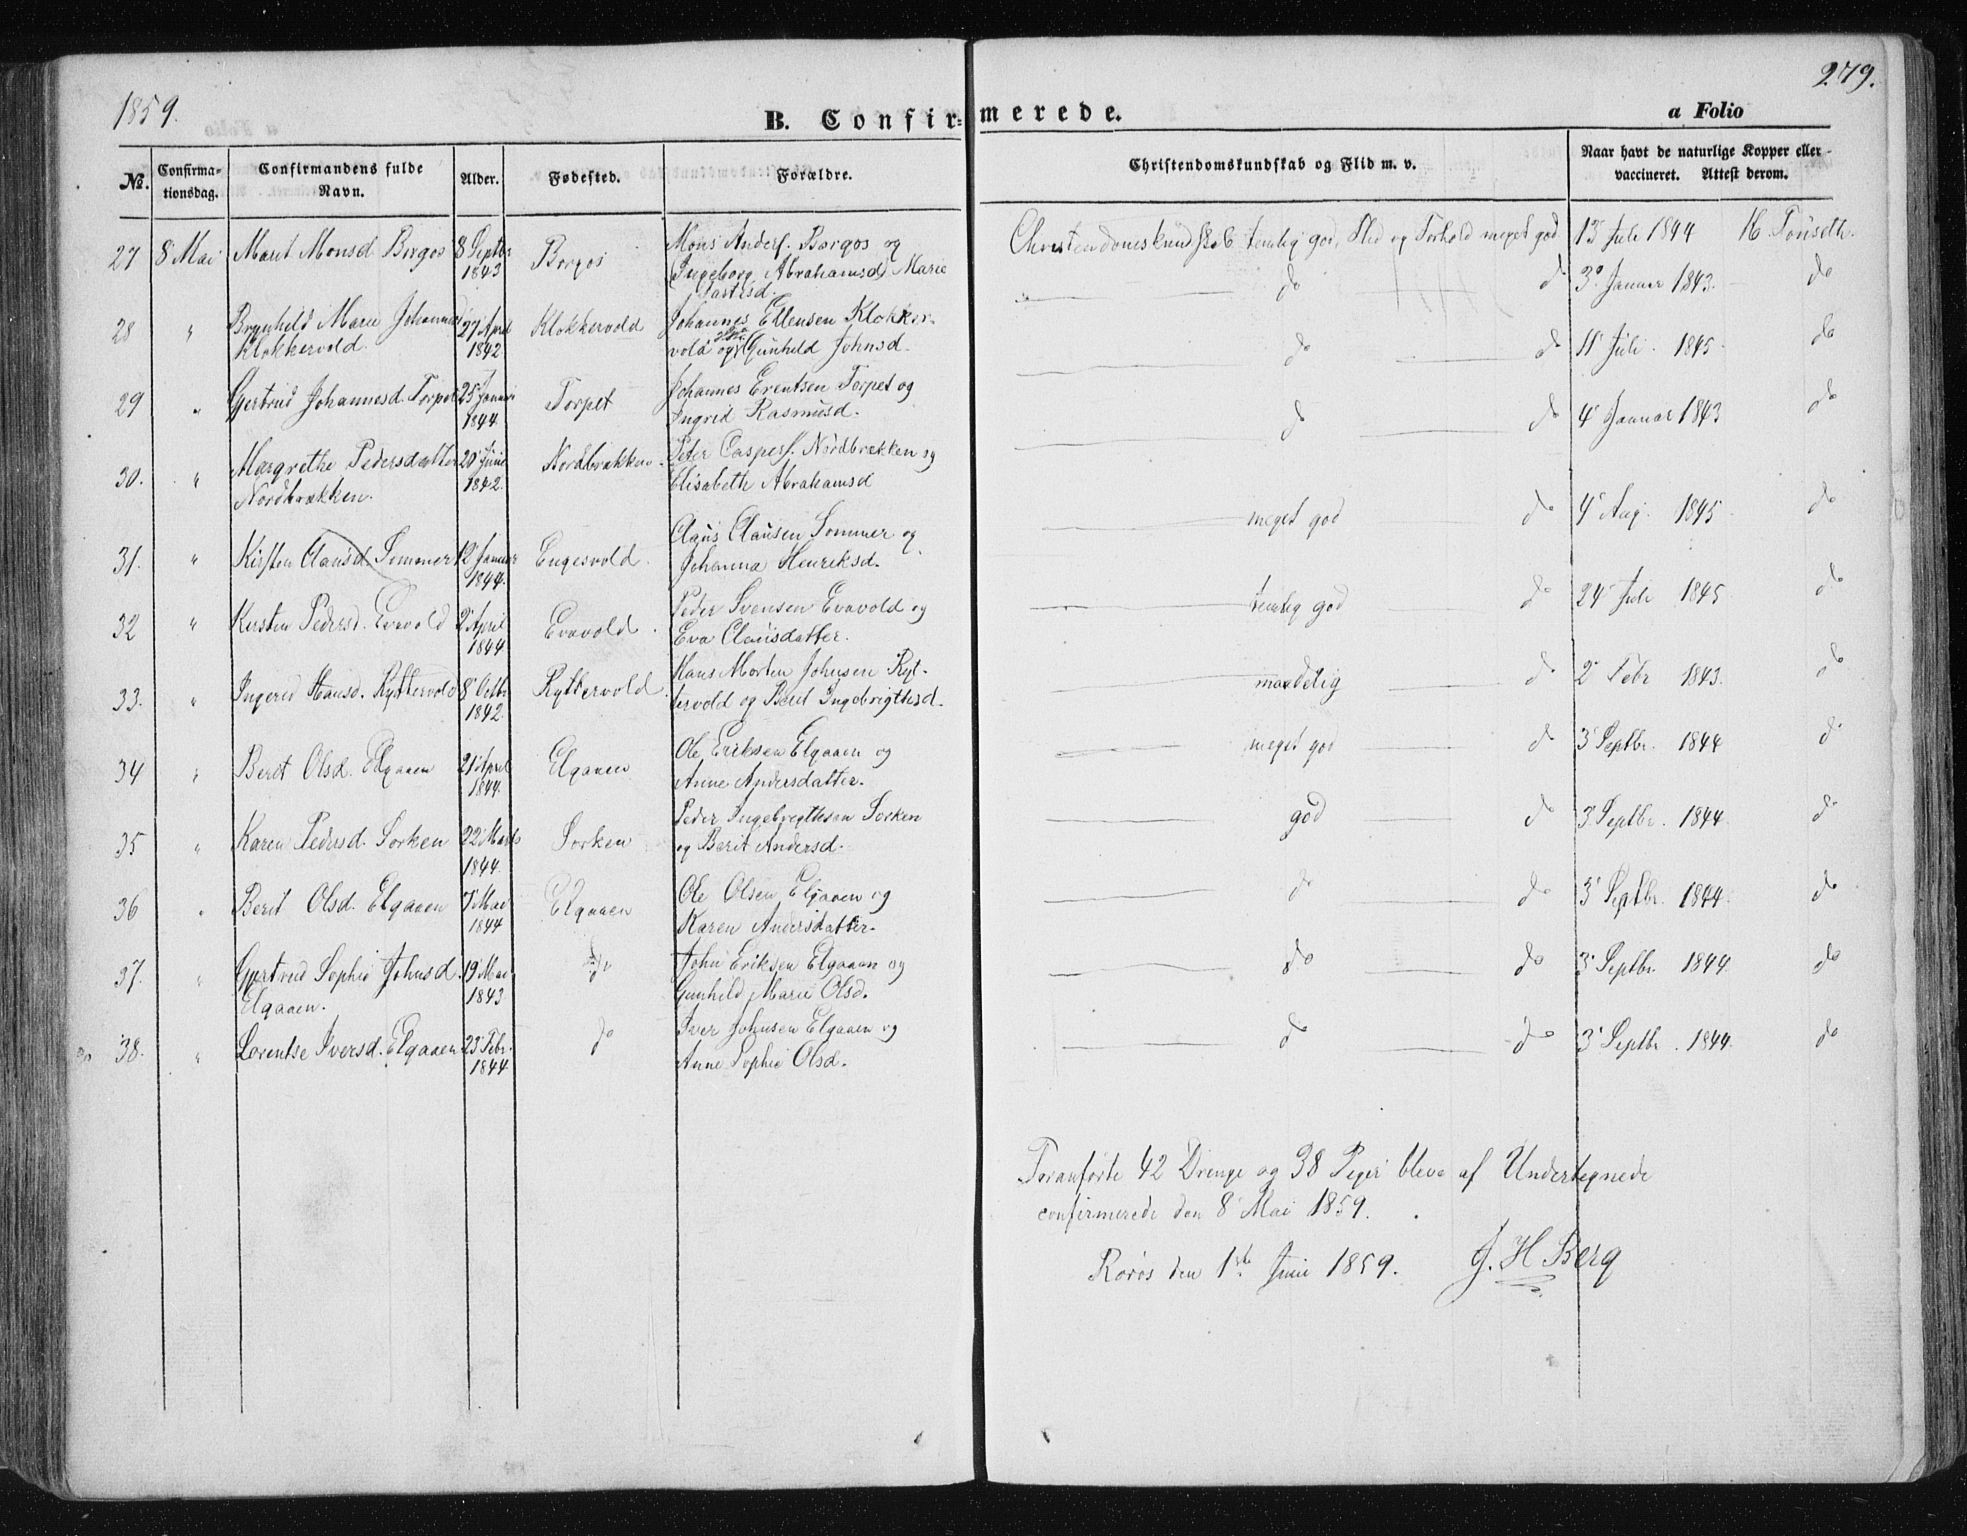 1859.
279.
B. Confirmerede.
a Folio
No.
Confirmationsdag.
Confirmandens fulde Navn.
Alder.
Fødested.
Forældre.
Christendomskundskab og Flid m. v.
Naar havt de naturlige Kopper eller vaccineret. Attest derom.
27 8 Mai Marit Monsd Borgos 8 Septbr 1843 Borgos Mons Anders. Borgos og Christendomskundskab temlig god, Flid og Forhold meget god 13 Juli 1844 H. Tønseth.
Ingeborg Abrahamsd Marie
28 " Brynhild Marie Johannesd 27 April 1842 Klokkervold Johannes Ellensen Klokker- do do 3 Januar 1843. do
Klokkervold. vold og Gunhild Johnsd.
29 " Gertrud Johannesd. Torpet 25 Januar 1844 Torpet Johannes Erentsen Torpet og do do 11 Juli 1845 do
Ingrid Rasmusd.
30. " Margrethe Pedersdatter 20 Juni 1842. Nordbrækken Peter Caspers. Nordbrækken og do do 4 Januar 1843 do
Nordbrækken. Elisabeth Abrahamsd
31. " Kirsten Clausd. Sommer 12 Januar 1844. Engesvold. Claus Clausen Sommer og meget god do 4 Aug. 1845 do
Johanna Henriksd.
32 " Kersten Pedersd. Evavold 2 April 1844 Evavold. Peder Svensen Evavold og temlig god do 24 Juli 1845 do
Eva Clausdatter.
33. " Ingerid Hansd. Ryttervold 8 Octbr 1842. Ryttervold Hans Morten Johnsen Ryt- maadelig do 2 Febr 1843. do
tervold og Berit Ingebrigthsd.
34 " Berit Olsd. Elgaaen 21 April 1844. Elgaaen Ole Eriksen Elgaaen og meget god do 3 Septbr. 1844 do
Anne Andersdatter.
35 " Karen Pedersd. Sorken 22 Marts 1844. Sorken Peder Ingebrigthsen Sorken god do 3 Septbr. 1844. do
og Berit Andersd.
36 " Berit Olsd. Elgaaen 7 Mai 1844 Elgaaen Ole Olsen Elgaaen og do do 3 Septbr. 1844. do
Karen Andersdatter.
37. " Gjertrud Sophie Johnsd. 19 Mai 1843 do John Eriksen Elgaaen og do do 3 Septbr. 1844. do
Elgaaen. Gunhild Marie Olsd.
38. " Lorentse Iversd. Elgaaen 23 Febr. 1844 do Iver Johnsen Elgaaen og do do 3 Septbr. 1844. do
Anne Sophie Olsd.
Foranførte 42 Drenge og 38 Piger bleve af Undertegnede
confirmerede den 8 Mai 1859.
Røros den 1ste Juni 1859. J. H Berg